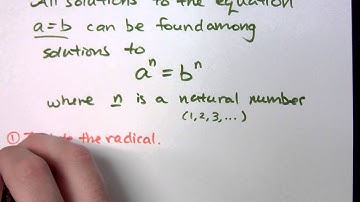 All solutions to the equation
a = b can be found among
solutions to
aⁿ = bⁿ
where n is a natural number
(1, 2, 3, ...)
① the radical.